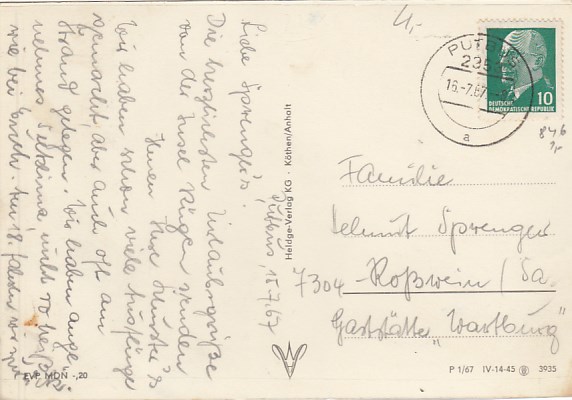 4,-
PUTBUS
16.-7.67
a
DEUTSCHE
DEMOKRATISCHE REPUBLIK
10
Putbus, 15.7.67
Liebe Sprenger's!
Die herzlichsten Urlaubsgrüße
von der Insel Rügen senden
Ihnen Ihre
Wir haben schon viele Ausflüge
gemacht aber auch oft am
Strand gelegen. Wir haben ange-
nehmes nicht so heiß
wie bei Euch. Am 18. fahren wir
Familie
Helmut Sprenger
7304 - Roßwein / Sa.
Gaststätte "Wartburg"
Heldge-Verlag KG · Köthen/Anholt
EVP MDN -,20
P 1/67 IV-14-45 3935